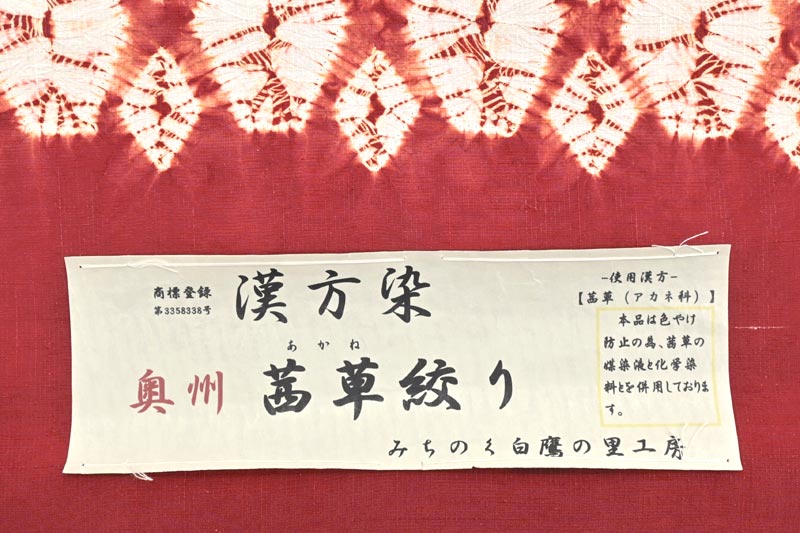 商標登録
第3358338号
漢方染
あかね
奥州 茜草絞り
みちのく白鷹の里工房
-使用漢方-
【茜草（アカネ科）】
本品は色やけ
防止の為、茜草の
媒染液と化学染
料とを併用しておりま
す。